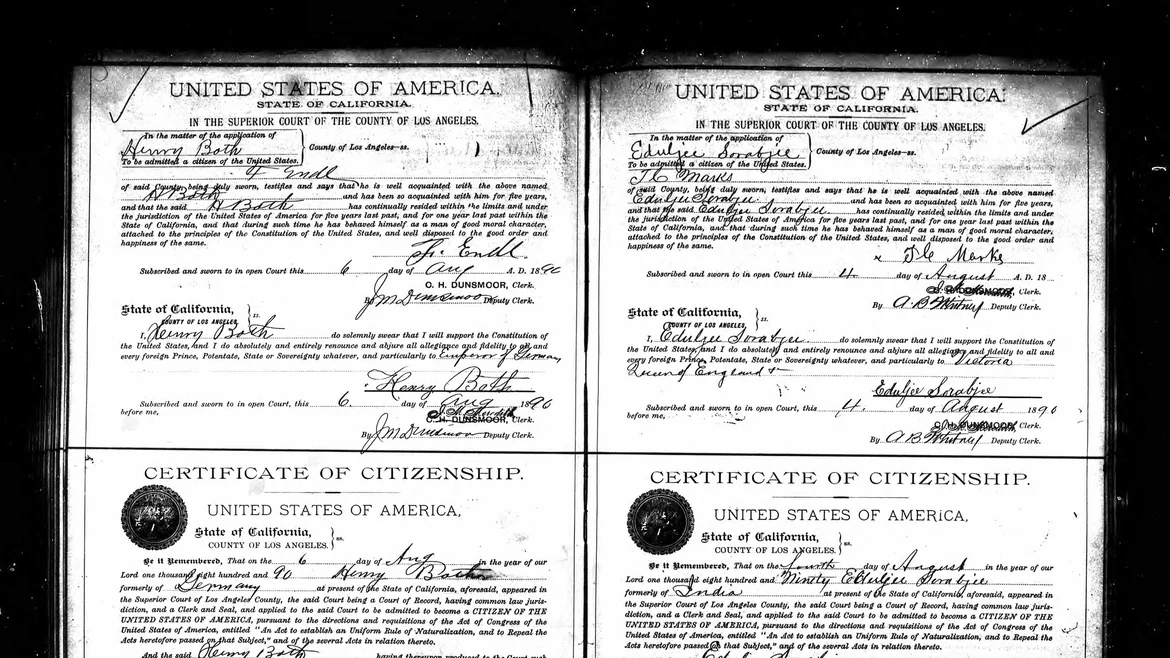 UNITED STATES OF AMERICA,
STATE OF CALIFORNIA.
IN THE SUPERIOR COURT OF THE COUNTY OF LOS ANGELES.
In the matter of the application of
Henry Both
To be admitted a citizen of the United States.
County of Los Angeles—ss.
F Endl
of said County, being duly sworn, testifies and says that he is well acquainted with the above named
H Both and has been so acquainted with him for five years,
and that the said H Both has continually resided within the limits and under
the jurisdiction of the United States of America for five years last past, and for one year last past within the
State of California, and that during such time he has behaved himself as a man of good moral character,
attached to the principles of the Constitution of the United States, and well disposed to the good order and
happiness of the same.
Fr. Endl.
Subscribed and sworn to in open Court this 6 day of Aug A. D. 1890
O. H. DUNSMOOR, Clerk.
By J M Dunsmoor Deputy Clerk.
State of California,
COUNTY OF LOS ANGELES,
ss.
I, Henry Both do solemnly swear that I will support the Constitution of
the United States, and I do absolutely and entirely renounce and abjure all allegiance and fidelity to all and
every foreign Prince, Potentate, State or Sovereignty whatever, and particularly to Emperor of Germany
Henry Both
Subscribed and sworn to in open Court, this 6. day of Aug 1890
before me,
C. H. DUNSMOOR, Clerk.
By J M Dunsmoor Deputy Clerk.
CERTIFICATE OF CITIZENSHIP.
UNITED STATES OF AMERICA,
State of California,
COUNTY OF LOS ANGELES.
ss.
Be it Remembered, That on the 6 day of Aug in the year of our
Lord one thousand eight hundred and 90 Henry Both
formerly of Germany at present of the State of California, aforesaid, appeared in
the Superior Court of Los Angeles County, the said Court being a Court of Record, having common law juris-
diction, and a Clerk and Seal, and applied to the said Court to be admitted to become a CITIZEN OF THE
UNITED STATES OF AMERICA, pursuant to the directions and requisitions of the Act of Congress of the
United States of America, entitled "An Act to establish an Uniform Rule of Naturalization, and to Repeal the
Acts heretofore passed on that Subject," and of the several Acts in relation thereto.
And the said Henry Both having thereupon produced to the Court such
UNITED STATES OF AMERICA.
STATE OF CALIFORNIA.
IN THE SUPERIOR COURT OF THE COUNTY OF LOS ANGELES.
In the matter of the application of
Eduljee Sorabjee
To be admitted a citizen of the United States.
County of Los Angeles—ss.
J C Marks
of said County, being duly sworn, testifies and says that he is well acquainted with the above named
Eduljee Sorabjee and has been so acquainted with him for five years,
and that the said Eduljee Sorabjee has continually resided within the limits and under
the jurisdiction of the United States of America for five years last past, and for one year last past within the
State of California, and that during such time he has behaved himself as a man of good moral character,
attached to the principles of the Constitution of the United States, and well disposed to the good order and
happiness of the same.
x J C Marks
Subscribed and sworn to in open Court this 4. day of August A. D. 18
C. H. DUNSMOOR, Clerk.
By A B Whitney Deputy Clerk.
State of California,
COUNTY OF LOS ANGELES,
ss.
I, Eduljee Sorabjee do solemnly swear that I will support the Constitution of
the United States, and I do absolutely and entirely renounce and abjure all allegiance and fidelity to all and
every foreign Prince, Potentate, State or Sovereignty whatever, and particularly to Victoria
Queen of England &
Eduljee Sorabjee
Subscribed and sworn to in open Court, this 4. day of August 1890
before me,
C. H. DUNSMOOR, Clerk.
By A B Whitney Deputy Clerk.
CERTIFICATE OF CITIZENSHIP.
UNITED STATES OF AMERICA,
State of California,
COUNTY OF LOS ANGELES.
ss.
Be it Remembered, That on the fourth day of August in the year of our
Lord one thousand eight hundred and Ninety Eduljee Sorabjee
formerly of India at present of the State of California, aforesaid, appeared in
the Superior Court of Los Angeles County, the said Court being a Court of Record, having common law juris-
diction, and a Clerk and Seal, and applied to the said Court to be admitted to become a CITIZEN OF THE
UNITED STATES OF AMERICA, pursuant to the directions and requisitions of the Act of Congress of the
United States of America, entitled "An Act to establish an Uniform Rule of Naturalization, and to Repeal the
Acts heretofore passed on that Subject," and of the several Acts in relation thereto.